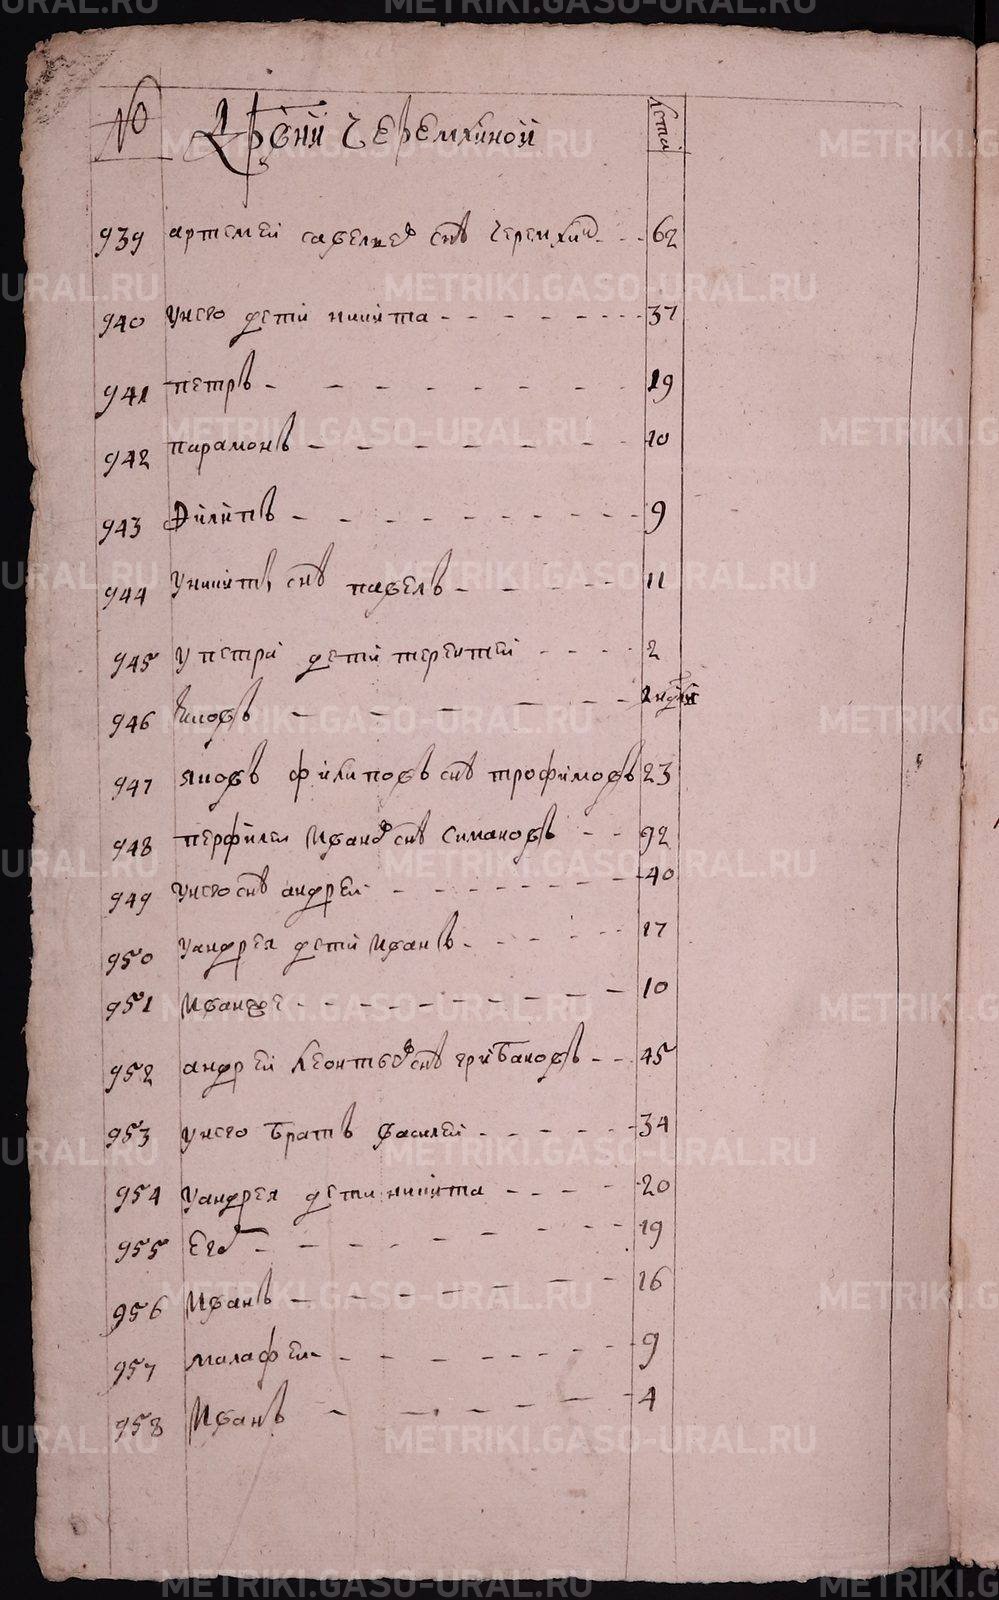 № Дрвни Черемхиной лета
939 артемей савелевъ снъ черемхин 62
940 унего дети никита 37
941 петръ 19
942 парамонъ 10
943 Филипъ 9
944 уникиты снъ павелъ 11
945 у петра дети терентей 2
946 Яковъ 2 ндли
947 яковъ филиповъ снъ трофимовъ 23
948 перфилеи Иванов снъ Симаковъ 92
949 унего снъ андреи 40
950 уандрея дети Иванъ 17
951 Иванже 10
952 андреи леонтьев снъ грибановъ 45
953 унего братъ василей 34
954 уандрея дети никита 20
955 Его 19
956 Иванъ 16
957 малафеи 9
958 Иванъ 4
METRIKI.GASO-URAL.RU